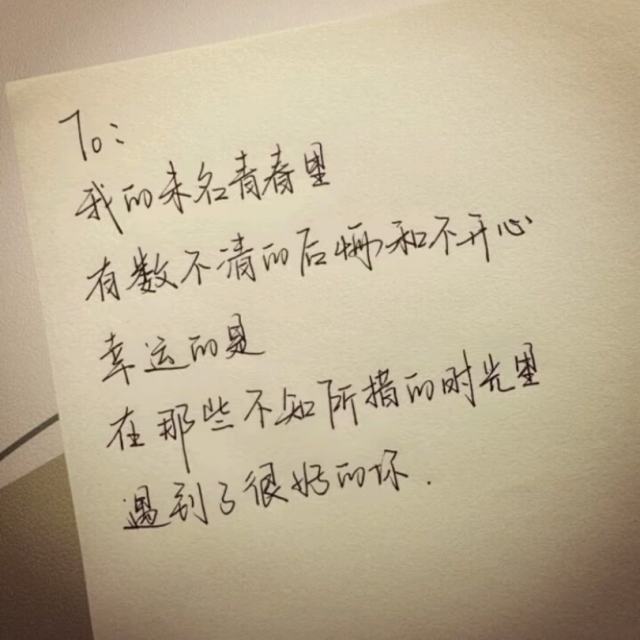 To:
我的未名青春里
有数不清的后悔和不开心
幸运的是
在那些不知所措的时光里
遇到了很好的你.